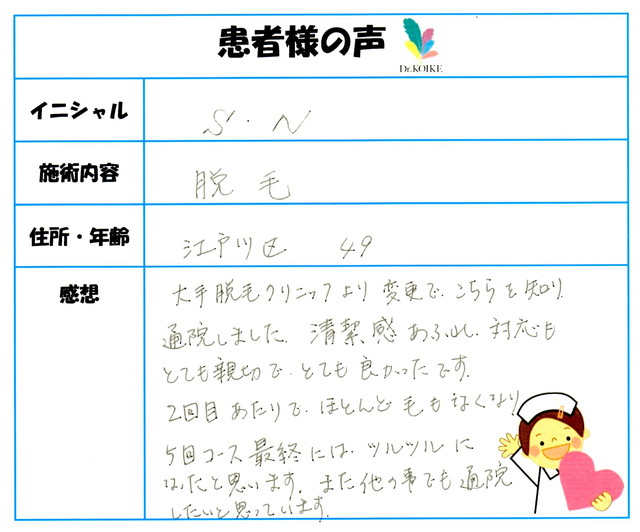 患者様の声
Dr.KOIKE
イニシャル
S・N
施術内容
脱毛
住所・年齢
江戸川区 49
感想
大手脱毛クリニックより変更で、こちらを知り、
通院しました。清潔感あふれ、対応も
とても親切で、とても良かったです。
2回目あたりで、ほとんど毛もなくなり
5回コース最終には、ツルツルに
なったと思います。また他の事でも通院
したいと思っています。